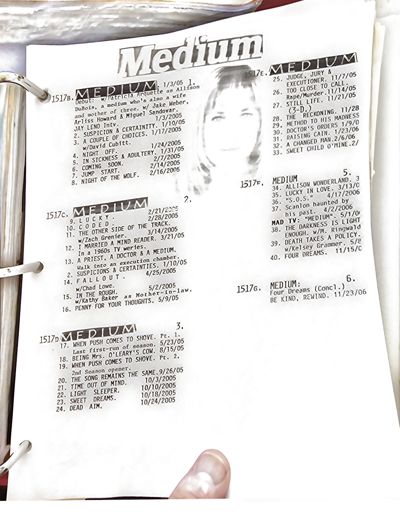 Medium
1517B. MEDIUM 1/3/05 1.
Debut: w/Patricia Arquette as Allison
DuBois, a medium who's also a wife
and mother of three. w/ Jake Weber,
Arliss Howard & Miguel Sandoval.
JAY LENO Intv. 1/3/2005
2. SUSPICION & CERTAINITY. 1/10/05
3. A COUPLE OF CHOICES. 1/17/2005
w/David Cubitt.
4. NIGHT OFF. 1/24/2005
5. IN SICKNESS & ADULTERY. 1/31/05
6. COMING SOON. 2/7/2005
7. JUMP START. 2/14/2005
8. NIGHT OF THE WOLF. 2/16/2005
1517C. MEDIUM 2.
9. LUCKY. 2/21/2005
10. CODED.
11. THE OTHER SIDE OF THE TRACK.
w/Zach Grenier. 3/14/2005
12. I MARRIED A MIND READER. 3/21/05
In a 1960s TV series.
13. A PRIEST, A DOCTOR & A MEDIUM.
Walk into an execution chamber.
2. SUSPICIONS & CERTAINTIES. 1/10/05
14. FALLOUT. 4/25/2005
w/Chad Lowe.
15. IN THE ROUGH. 5/2/2005
w/Kathy Baker as Mother-in-law.
16. PENNY FOR YOUR THOUGHTS. 5/9/05
1517D MEDIUM 3.
17. WHEN PUSH COMES TO SHOVE. Pt. 1.
Last first-run of season. 5/23/05
18. BEING Mrs. O'LEARY'S COW. 8/15/05
19. WHEN PUSH COMES TO SHOVE. Pt. 2.
2nd Season opener.
20. THE SONG REMAINS THE SAME. 9/26/05
21. TIME OUT OF MIND. 10/3/2005
22. LIGHT SLEEPER. 10/10/2005
23. SWEET DREAMS. 10/18/2005
24. DEAD AIM. 10/24/2005
1517E. MEDIUM
25. JUDGE, JURY &
EXECUTIONER. 11/7/05
26. TOO CLOSE TO CALL.
Rape/Murder. 11/14/05
27. STILL LIFE. 11/21/05
(3-D.)
28. THE RECKONING. 11/28
29. METHOD TO HIS MADNESS
30. DOCTOR'S ORDERS 1/9/0
31. RAISING CAIN. 1/23/06
32. A CHANGED MAN. 2/6/06
33. SWEET CHILD O'MINE. 2/
1517F. MEDIUM 5.
34. ALLISON WONDERLAND. 3
35. LUCKY IN LOVE. 3/13/0
36. "S.O.S." 4/17/2006
37. Scanlon haunted by
his past. 4/2/2006
MAD TV: "MEDIUM". 5/1/0
38. THE DARKNESS IS LIGHT
ENOUGH. w/M. Ringwald
39. DEATH TAKES A POLICY.
w/Kelsey Grammer. 5/8
40. FOUR DREAMS. 11/15/
1517G. MEDIUM: 6.
Four Dreams (Concl.)
BE KIND, REWIND. 11/23/06